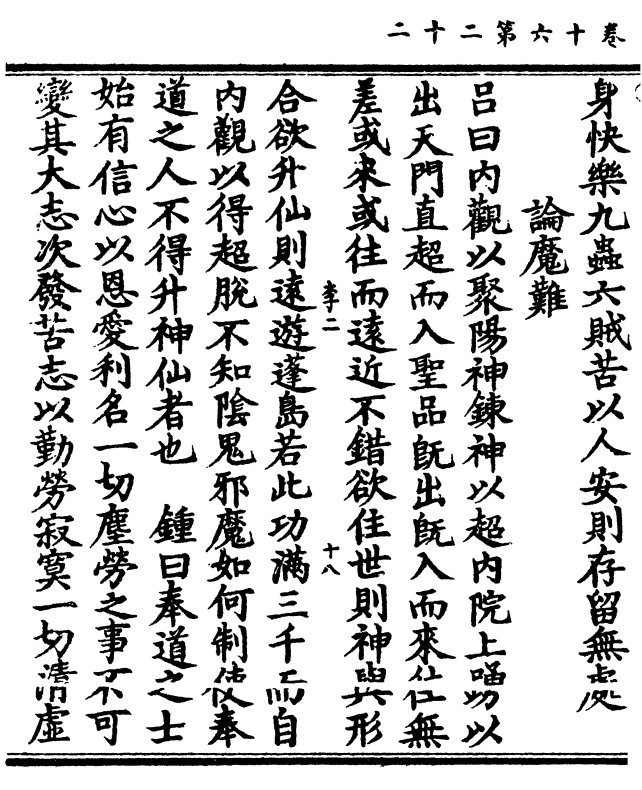 卷十六第二十二
身快樂九蟲六賊苦以人安則存留無處
論魔難
呂曰内觀以聚陽神鍊神以超内院上踴以
出天門直超而入聖品旣出旣入而來往無
差或來或往而遠近不錯欲住世則神與形
李二
十八
合欲升仙則遠遊蓬島若此功滿三千而自
内觀以得超脫不知陰鬼邪魔如何制使奉
道之人不得升神仙者也 鍾曰奉道之士
始有信心以恩愛利名一切塵勞之事不可
變其大志次發苦志以勤勞寂寞一切清虛